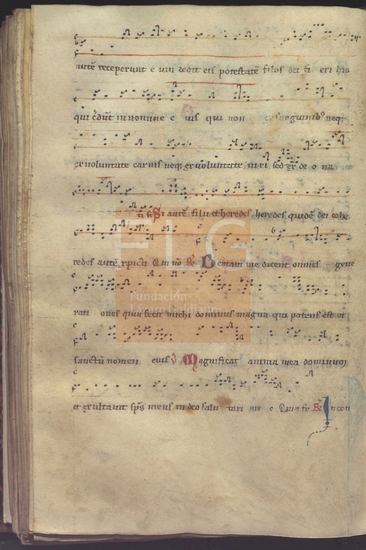 autē receperunt e um dedit eis potestatē filios dei fi eri his
qui credūt in nomine e ius qui non sanguinib; neq;
ex voluntate carnis neq; ex voluntate viri sed ex deo na
Si autē filii et heredes heredes quidē dei cohe
redes autē xpisti Beatam me dicent omnes gene
rati ones quia fecit michi dominus magna qui potens est et
sanctū nomen eius Magnificat anima mea dominum
et exultavit sp̄s meus in deo salu tari me o In con
FLG
Fundación